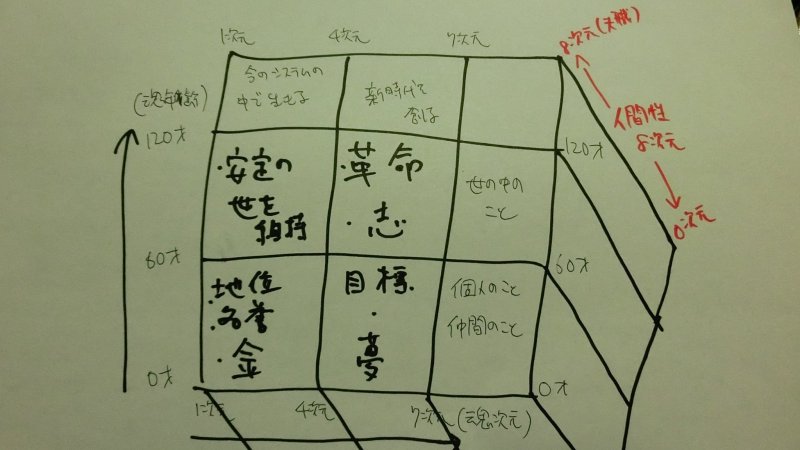 1次元　4次元　7次元　8次元(天職)
今のシステムの
中で生きる
新時代を
創る
(魂年齢)
人間性
8次元
0次元
120才　120才
・安定の
世を
維持
革命
・志
世の中の
こと
60才　60才
地位
・名誉
・金
目標
・夢
個人のこと
仲間のこと
0才　0才
1次元　4次元　7次元(魂次元)